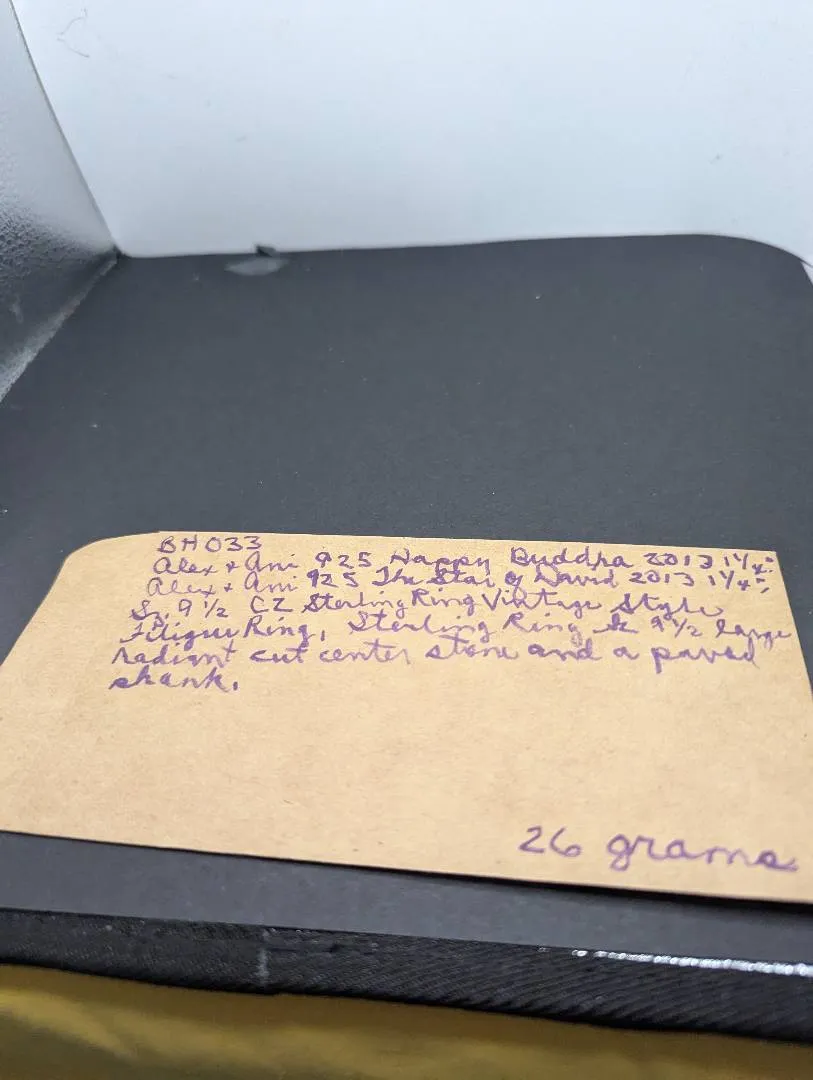 BH033
Alex + Ani 925 Happy Buddha 2013 1 1/4"
Alex + Ani 925 The Star of David 2013 1 1/4",
Sz 9 1/2 CZ Sterling Ring Vintage Style
Filigree Ring, Sterling Ring Sz 9 1/2 large
radiant cut center stone and a paved
shank.
26 grams